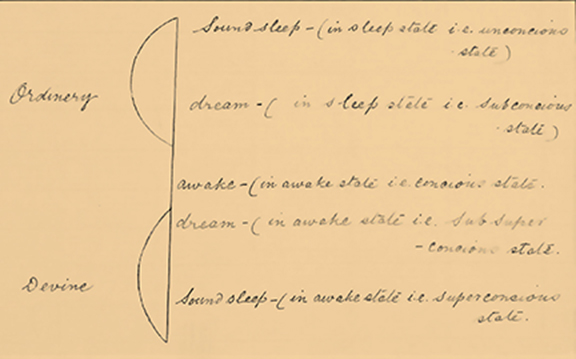 Sound sleep - (in sleep state i.e. unconcious
state)
Ordinery
dream - ( in sleep state i.e. subconcious
state)
awake - (in awake state i.e. concious state.
dream - ( in awake state i.e. sub super
- concious state.
Devine
Sound sleep - (in awake state i.e. superconsious
state.